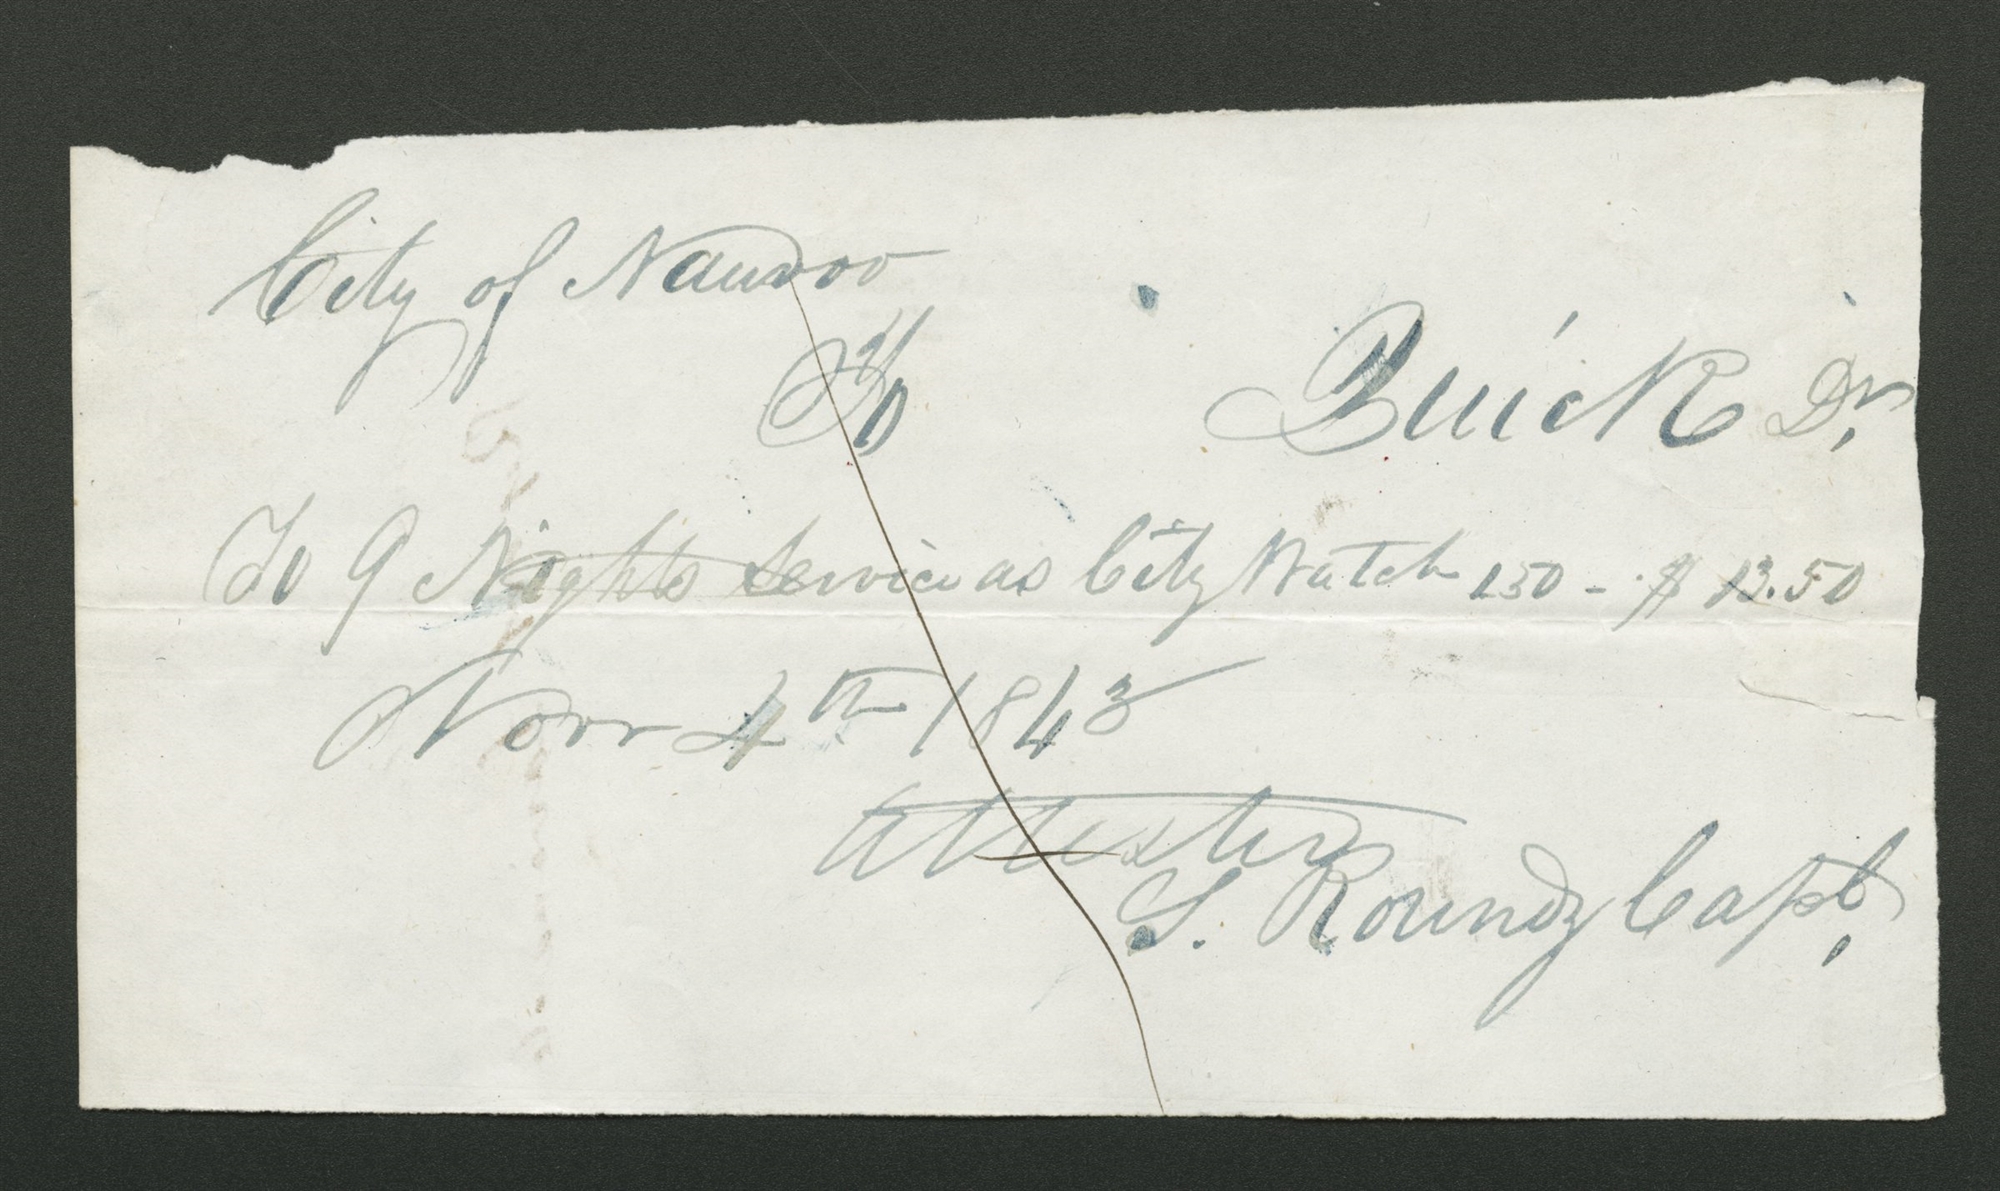 City of Nauvoo
To Quick Dr,
To 9 Nights Service as City Watch 150 - $ 13.50
Novr 4th 1843
Attest
S. Roundy Capt,